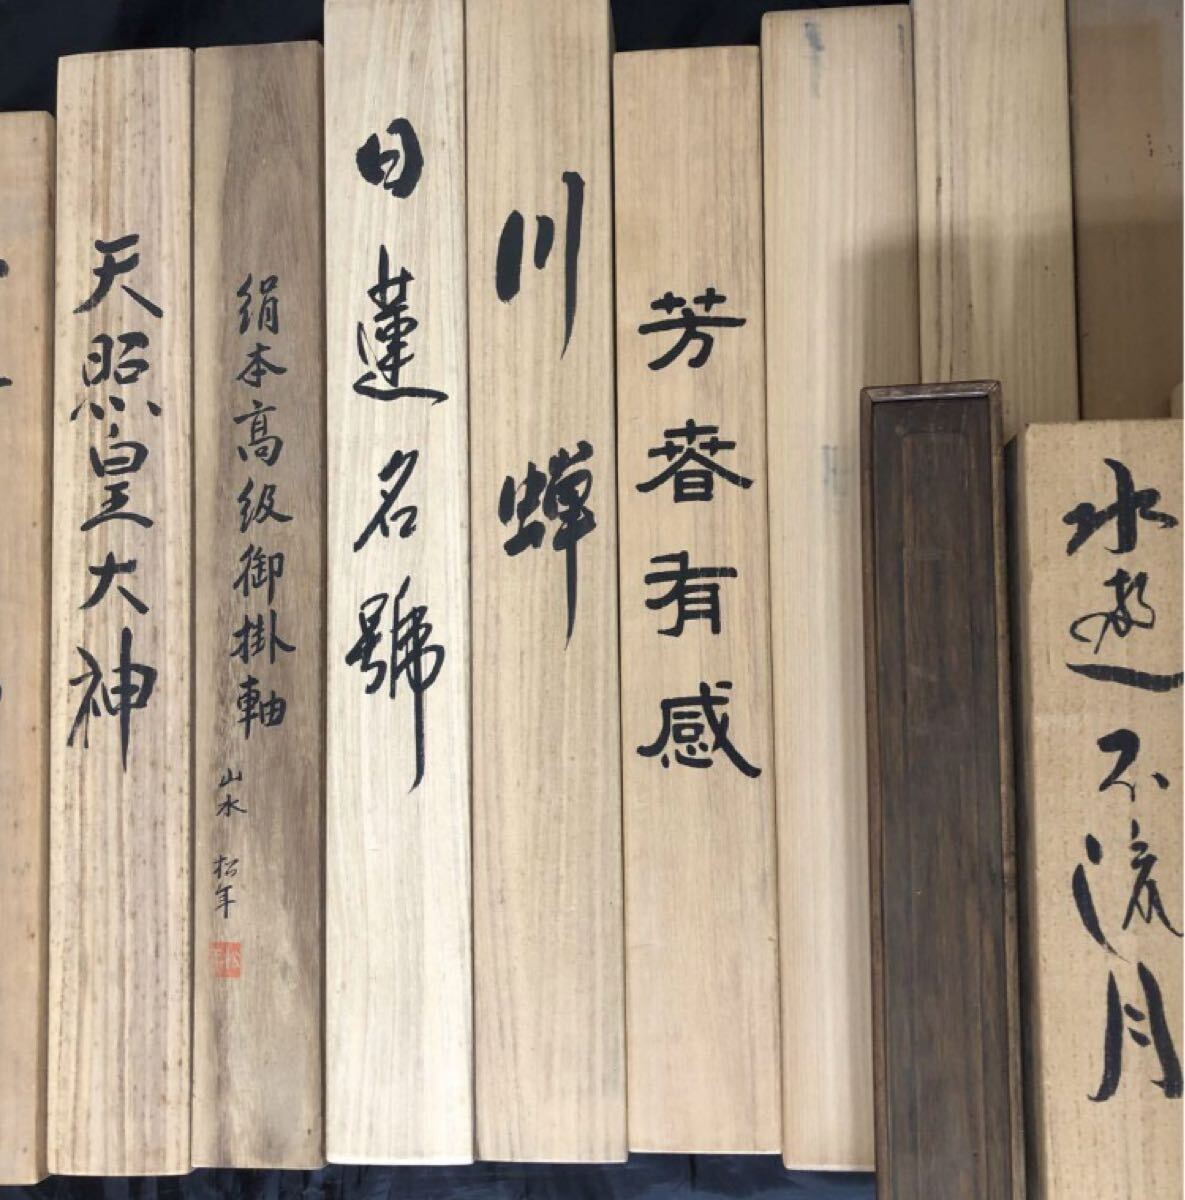 天照皇大神
絹本高級御掛軸
山水 松年
日蓮名號
川蝉
芳春有感
水遊不流月